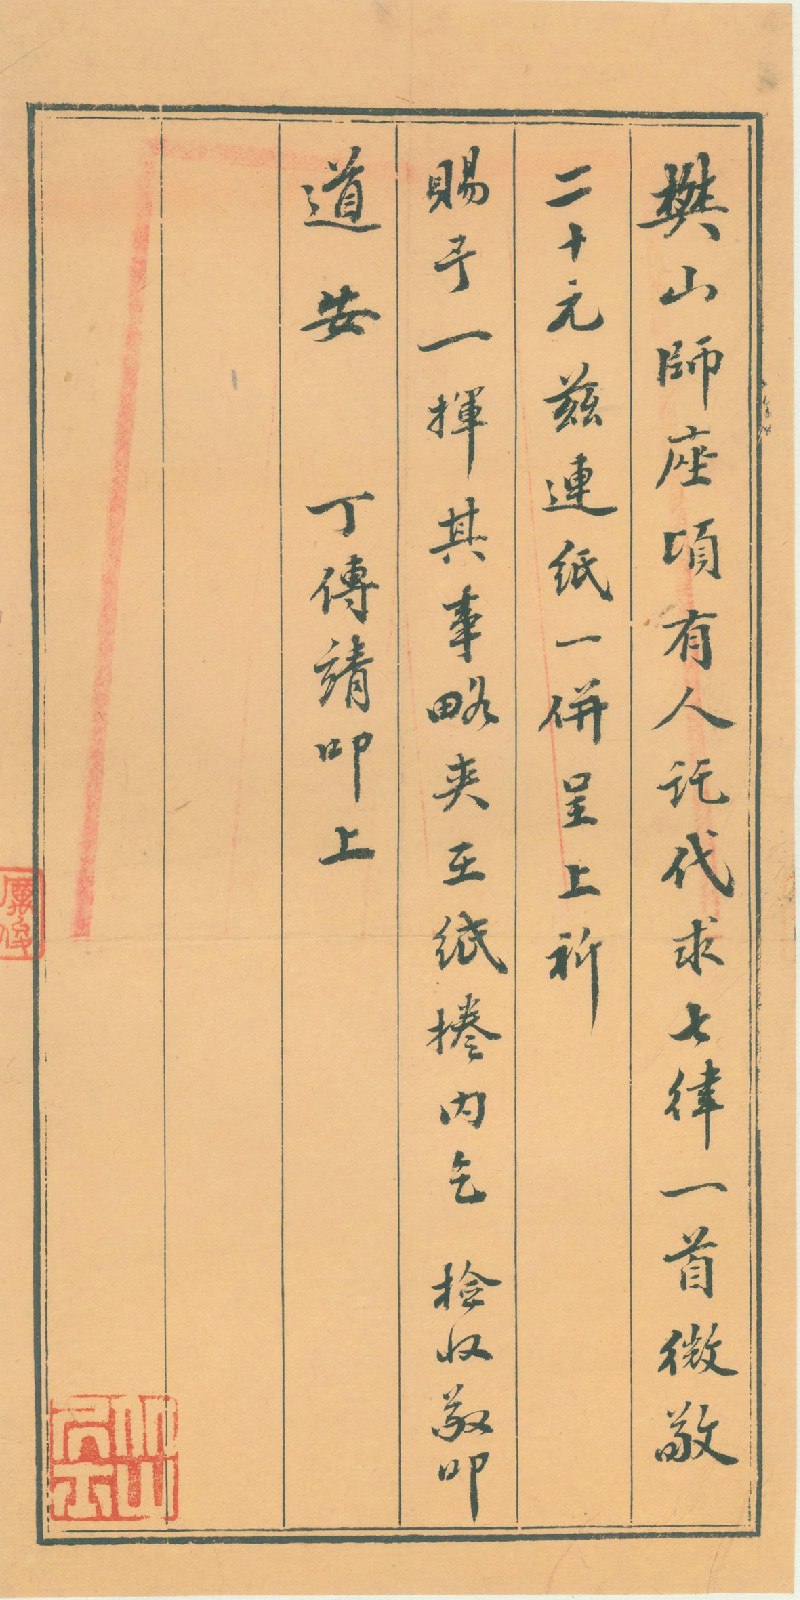 樊山師座頃有人託代求七律一首微敬
二十元茲連紙一併呈上祈
賜予一揮其事略夾在紙捲內乞 檢收敬叩
道安 丁傳靖叩上